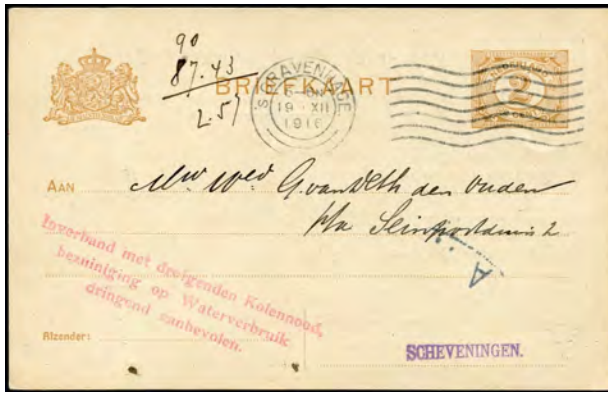 90
87.43
2.57
BRIEFKAART
'S GRAVENHAGE
19 XII
1916
NEDERLAND
2
AAN Mw Wed G. van Deth den Ouden
p/a Seinpostduin 2
A
Inverband met dreigenden Kolennood,
bezuiniging op Waterverbruik
dringend aanbevolen.
Afzender:
SCHEVENINGEN.